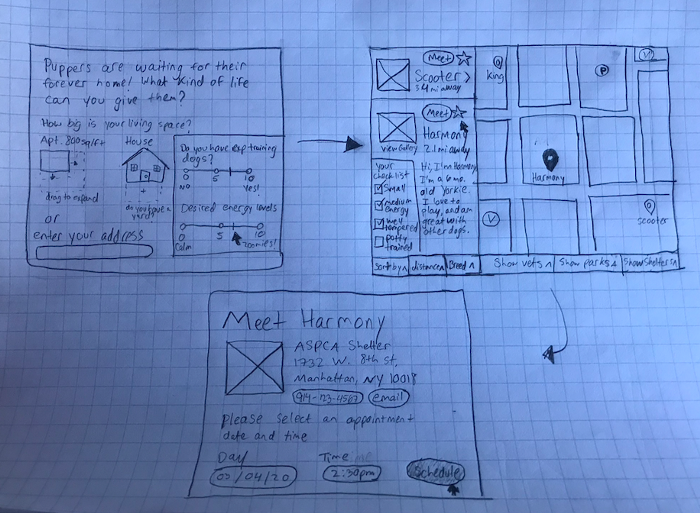 Puppers are waiting for their
forever home! What kind of life
can you give them?
How big is your living space?
Apt. 800sqft
House
drag to expand
do you have a
yard?
or
enter your address
Do you have exp training
dogs?
0 5 10
NO Yes!
Desired energy levels
0 5 10
Calm Zoomies!
Meet
Scooter >
5.4 mi away
Meet
Harmony
2.1 mi away
View Gallery
your
checklist
Small
medium
energy
well
tempered
potty
trained
Hi, I'm Harmony
I'm a 6 mo.
old Yorkie.
I love to
play, and am
great with
other dogs.
Sort by ^ distance ^ Breed ^
King
P
V
Harmony
V
Scooter
Show vets ^ Show parks ^ Show Shelters ^
Meet Harmony
ASPCA Shelter
1732 W. 8th St,
Manhattan, NY 10018
914-123-4567 email
please select an appointment
date and time
Day Time
02/04/20 2:30pm Schedule